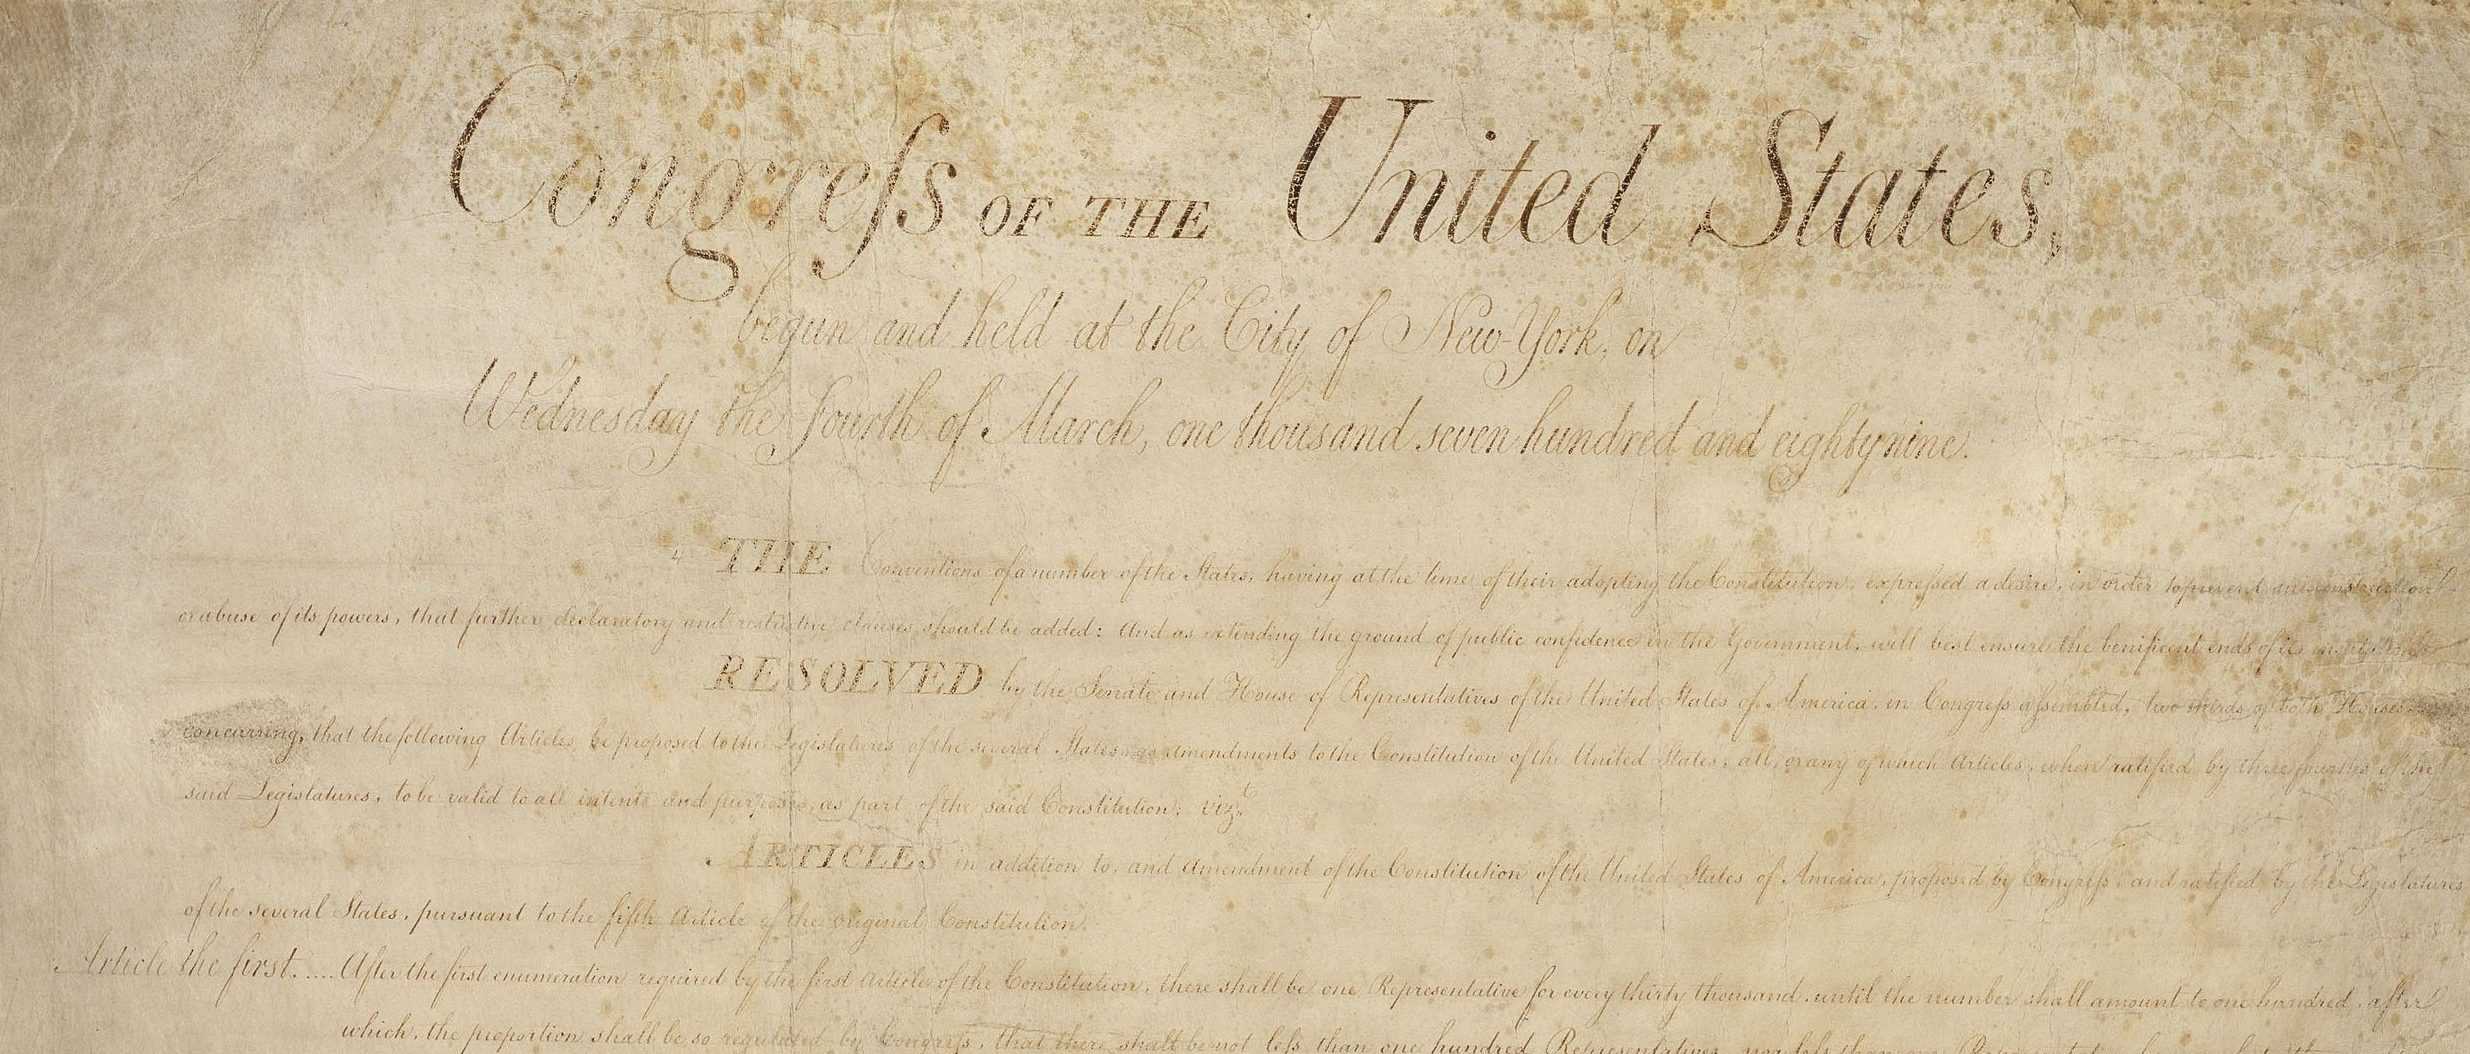 Congreſs OF THE United States,
begun and held at the City of New-York, on
Wednesday the fourth of March, one thousand seven hundred and eighty nine.
THE Conventions of a number of the States, having at the time of their adopting the Constitution, expreſsed a desire, in order to prevent misconstruction
or abuse of its powers, that further declaratory and restrictive clauses should be added: And as extending the ground of public confidence in the Government, will best ensure the benificent ends of its
RESOLVED by the Senate and House of Representatives of the United States of America, in Congreſs aſsembled, two thirds of both Houses
concurring, that the following Articles be proposed to the Legislatures of the several States, as amendments to the Constitution of the United States, all, or any of which Articles, when ratified by three fourths of the
said Legislatures, to be valid to all intents and purposes, as part of the said Constitution; vizt.
ARTICLES in addition to, and amendment of the Constitution of the United States of America, proposed by Congreſs, and ratified by the Legislatures
of the several States, pursuant to the fifth Article of the original Constitution.
Article the first..... After the first enumeration required by the first Article of the Constitution, there shall be one Representative for every thirty thousand, until the number shall amount to one hundred, after
which, the proportion shall be so regulated by Congreſs, that there shall be not leſs than one hundred Representatives, nor leſs than one